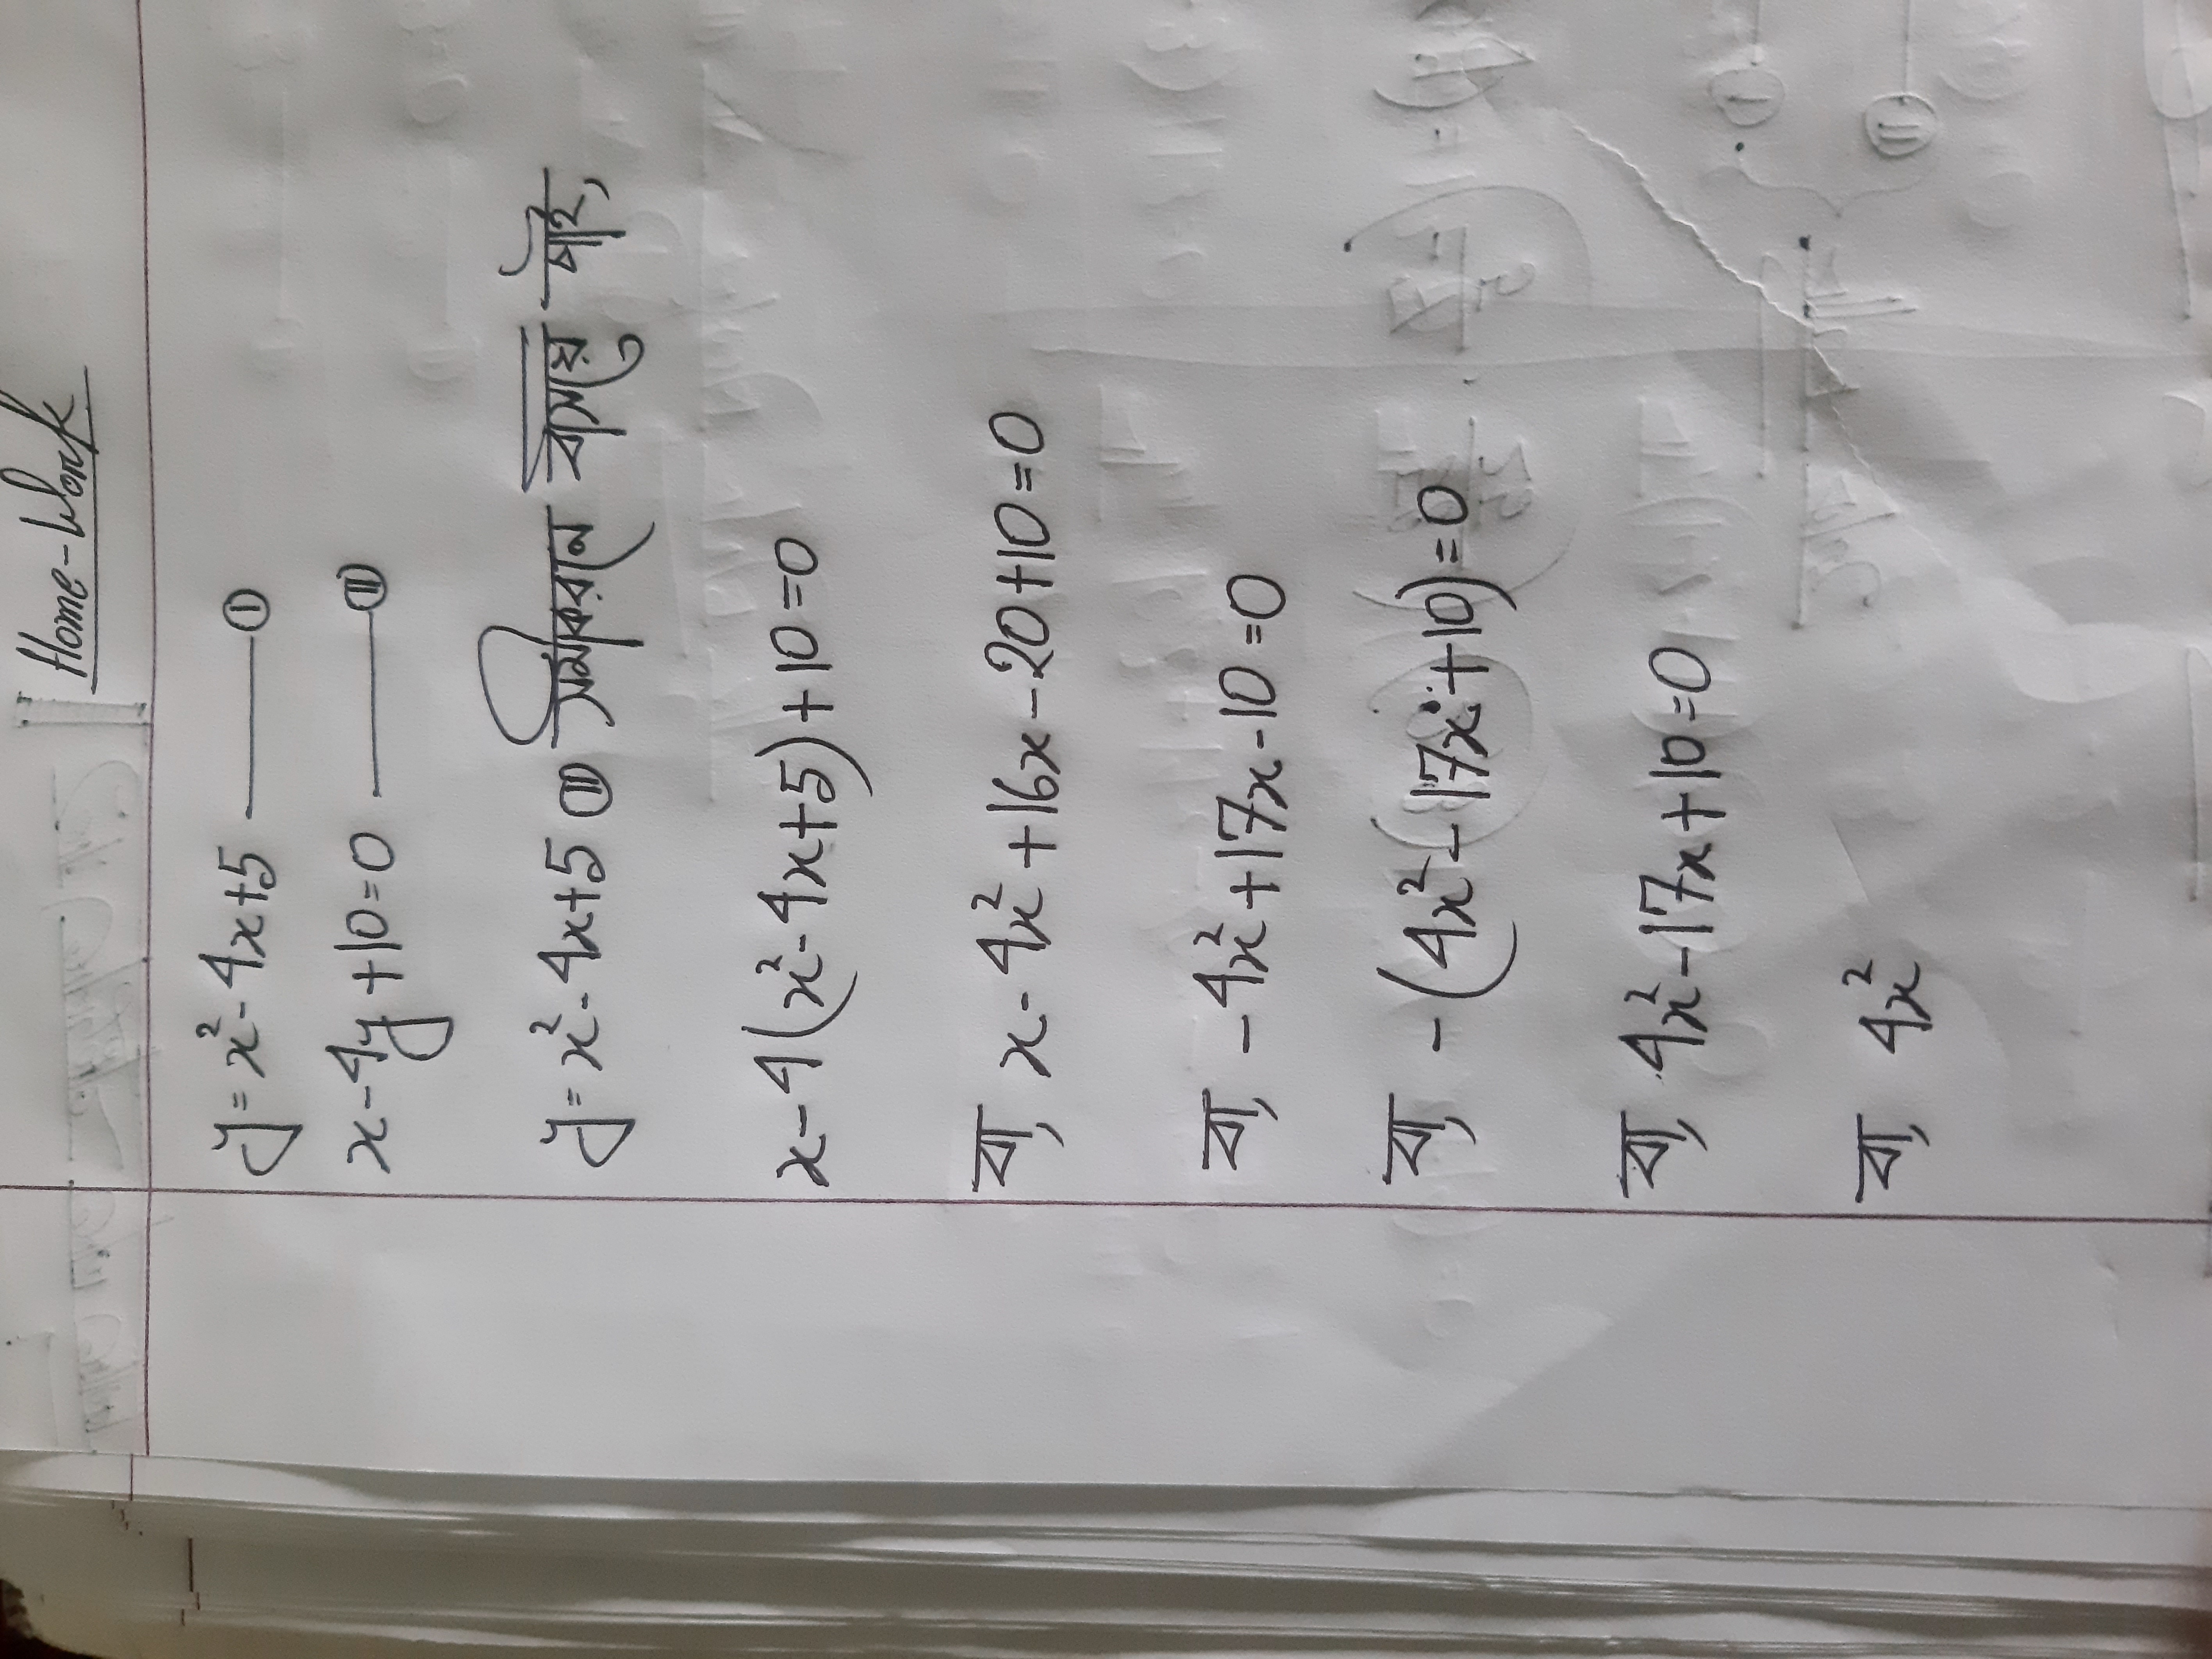 Home-Work
y = x² - 4x + 5 ——— ①
x - 4y + 10 = 0 ——— ⑪
y = x² - 4x + 5 ⑪ সমীকরনে বসিয়ে পাই,
x - 4(x² - 4x + 5) + 10 = 0
বা, x - 4x² + 16x - 20 + 10 = 0
বা, - 4x² + 17x - 10 = 0
বা, - (4x² - 17x + 10) = 0
বা, 4x² - 17x + 10 = 0
বা, 4x²